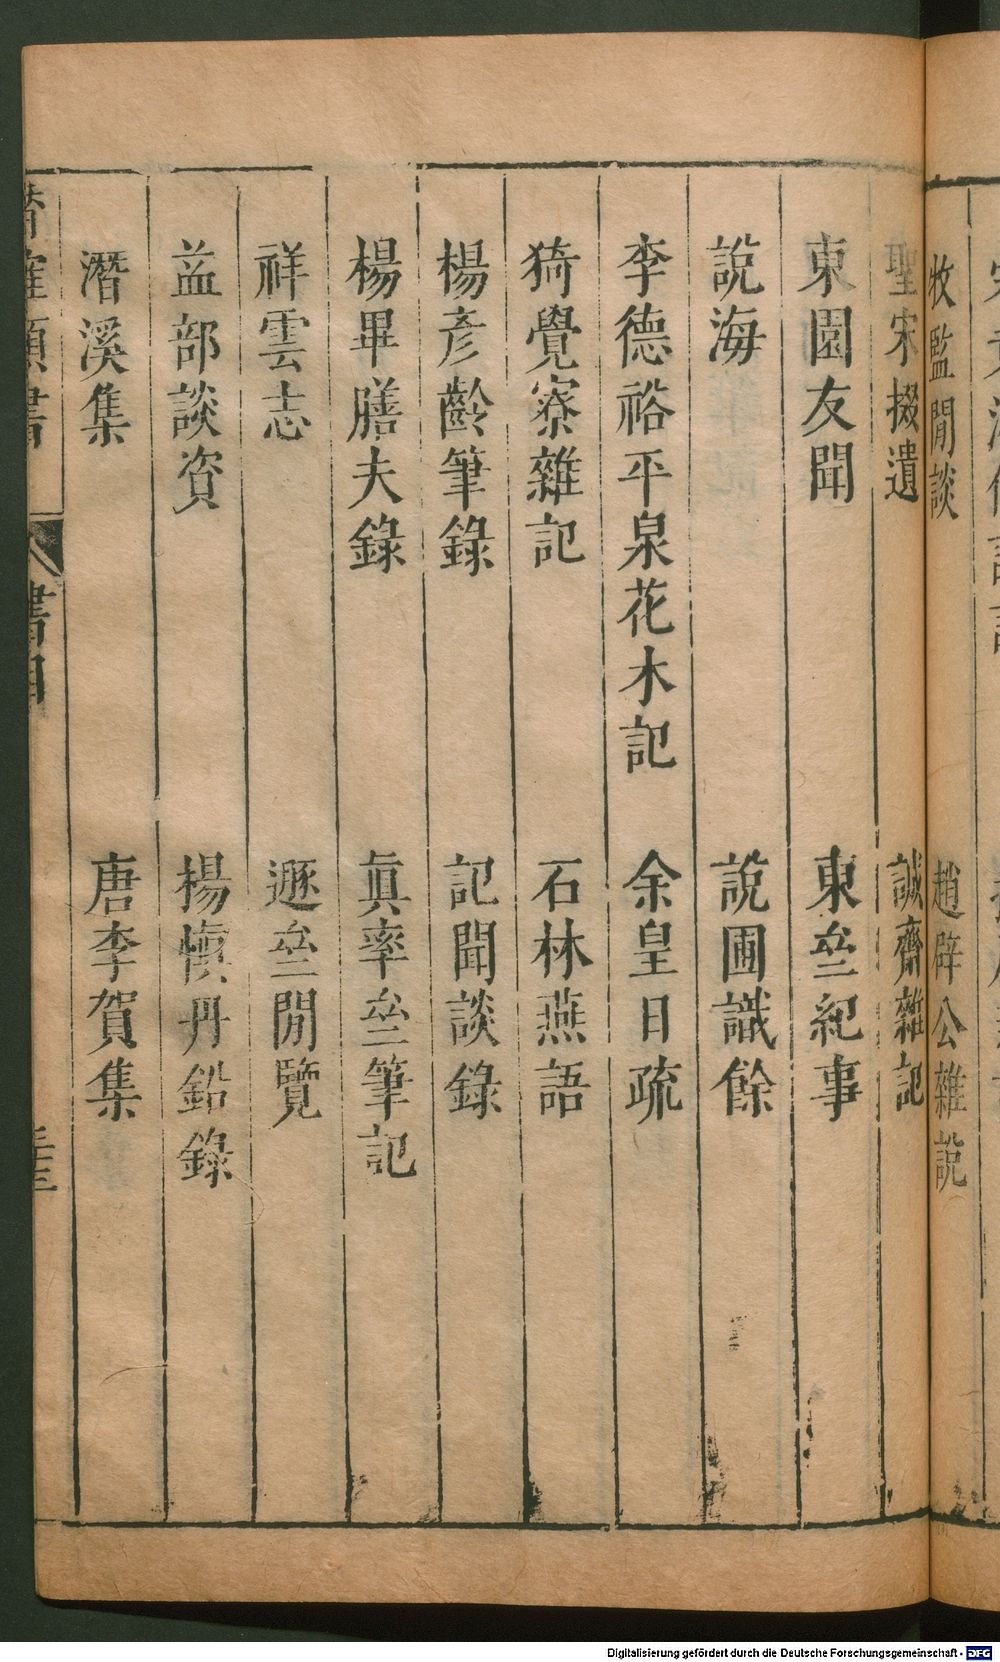 牧監閒談　趙辟公雜說
聖宋掇遺　誠齋雜記
東園友聞　東亝紀事
說海　說圃識餘
李德裕平泉花木記　余皇日疏
猗覺寮雜記　石林燕語
楊彥齡筆錄　記聞談錄
楊畢膳夫錄　眞率亝筆記
祥雲志　遯亝閒覽
益部談資　楊愼丹鉛錄
潛溪集　唐李賀集
類書　書目
Digitalisierung gefördert durch die Deutsche Forschungsgemeinschaft - DFG